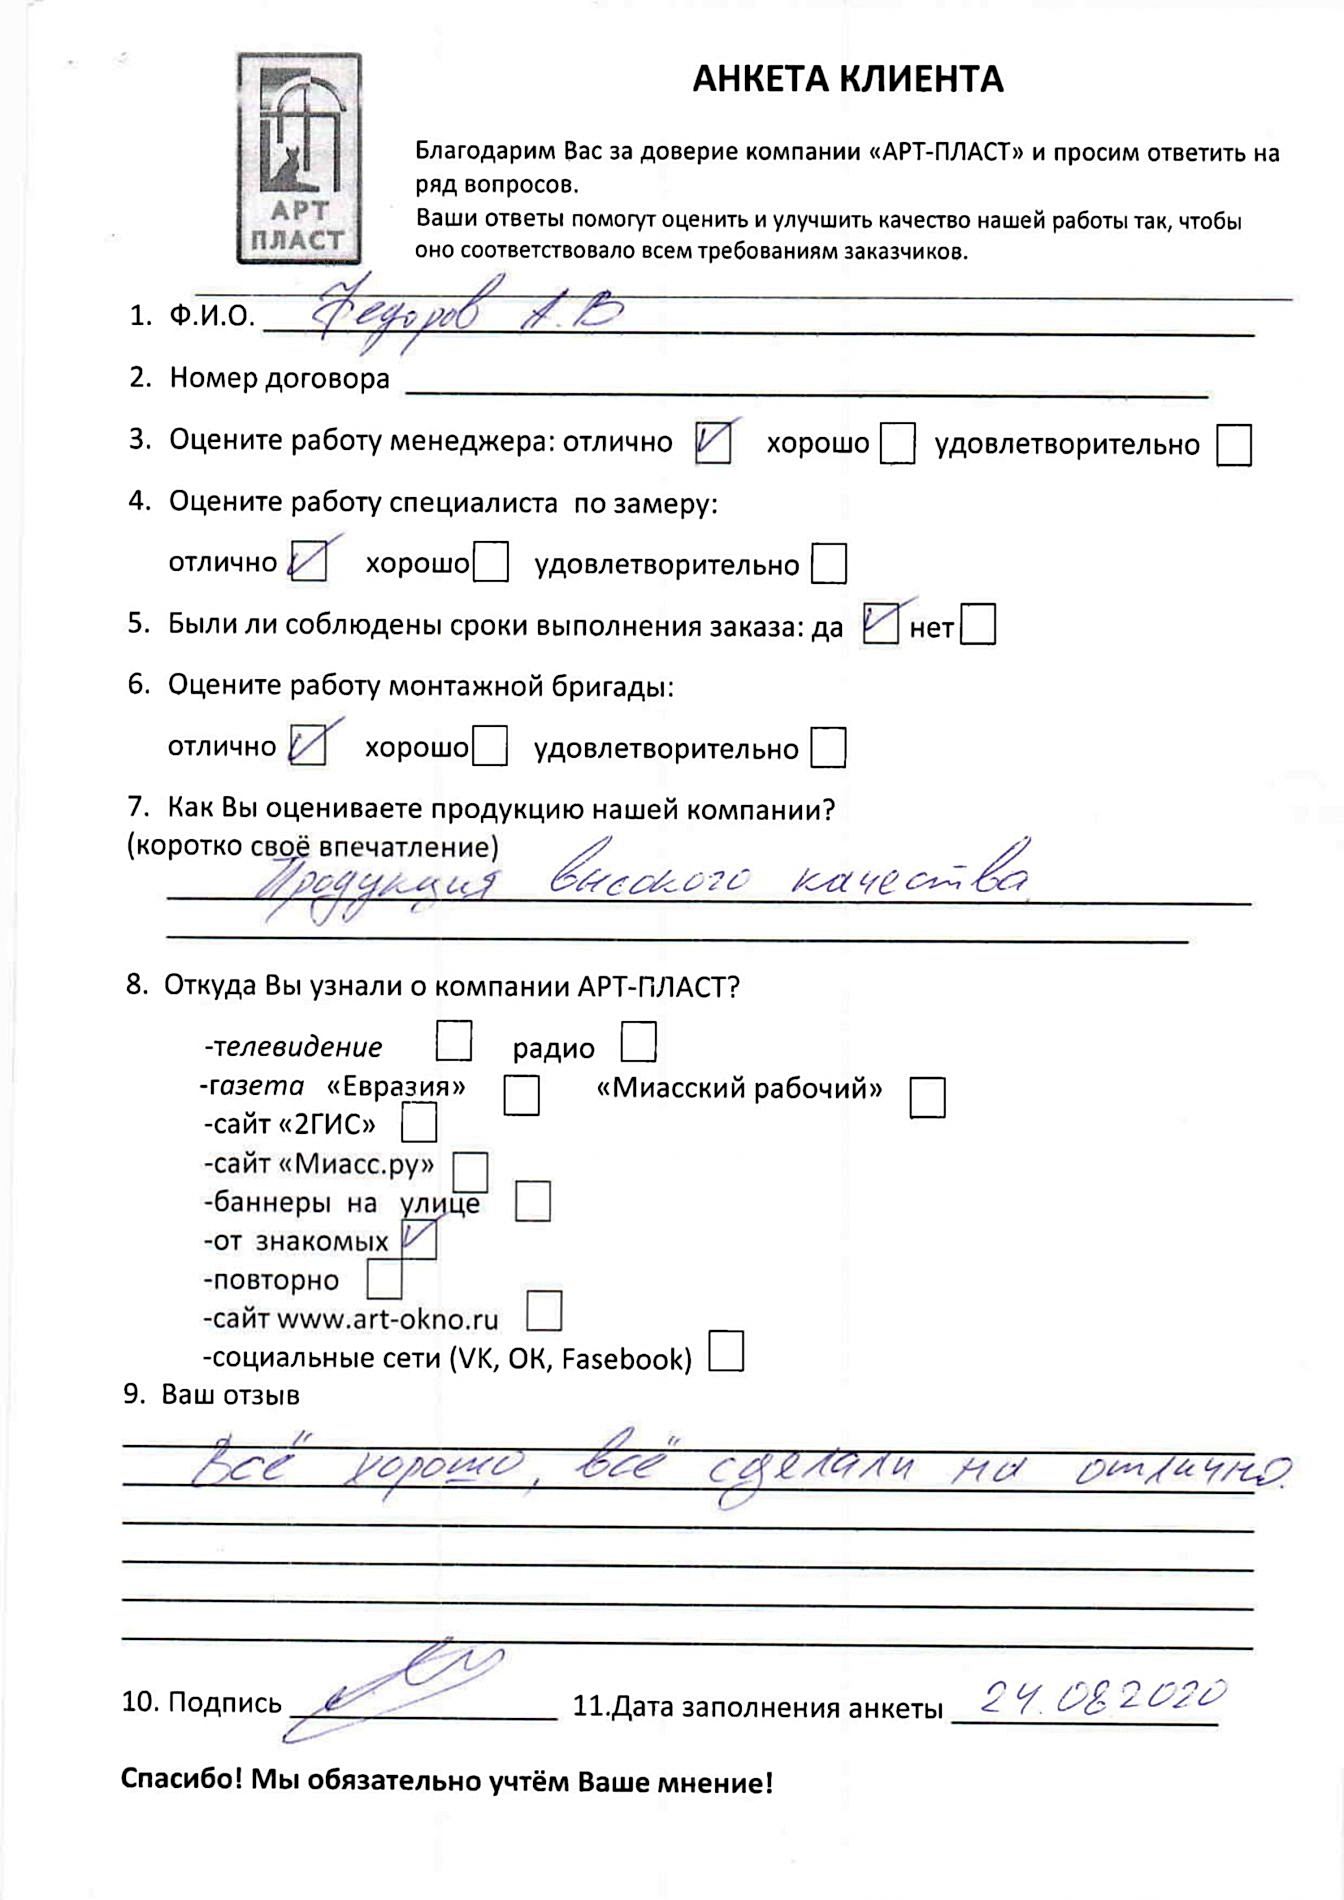 АНКЕТА КЛИЕНТА
АРТ
ПЛАСТ
Благодарим Вас за доверие компании «АРТ-ПЛАСТ» и просим ответить на
ряд вопросов.
Ваши ответы помогут оценить и улучшить качество нашей работы так, чтобы
оно соответствовало всем требованиям заказчиков.
1. Ф.И.О. Федоров А.В
2. Номер договора
3. Оцените работу менеджера: отлично хорошо удовлетворительно
4. Оцените работу специалиста по замеру:
отлично хорошо удовлетворительно
5. Были ли соблюдены сроки выполнения заказа: да нет
6. Оцените работу монтажной бригады:
отлично хорошо удовлетворительно
7. Как Вы оцениваете продукцию нашей компании?
(коротко своё впечатление)
Продукция высокого качества.
8. Откуда Вы узнали о компании АРТ-ПЛАСТ?
-телевидение радио
-газета «Евразия» «Миасский рабочий»
-сайт «2ГИС»
-сайт «Миасс.ру»
-баннеры на улице
-от знакомых
-повторно
-сайт www.art-okno.ru
-социальные сети (VK, OK, Fasebook)
9. Ваш отзыв
Всё хорошо, всё сделали на отлично.
10. Подпись 11.Дата заполнения анкеты 24.08.2020
Спасибо! Мы обязательно учтём Ваше мнение!